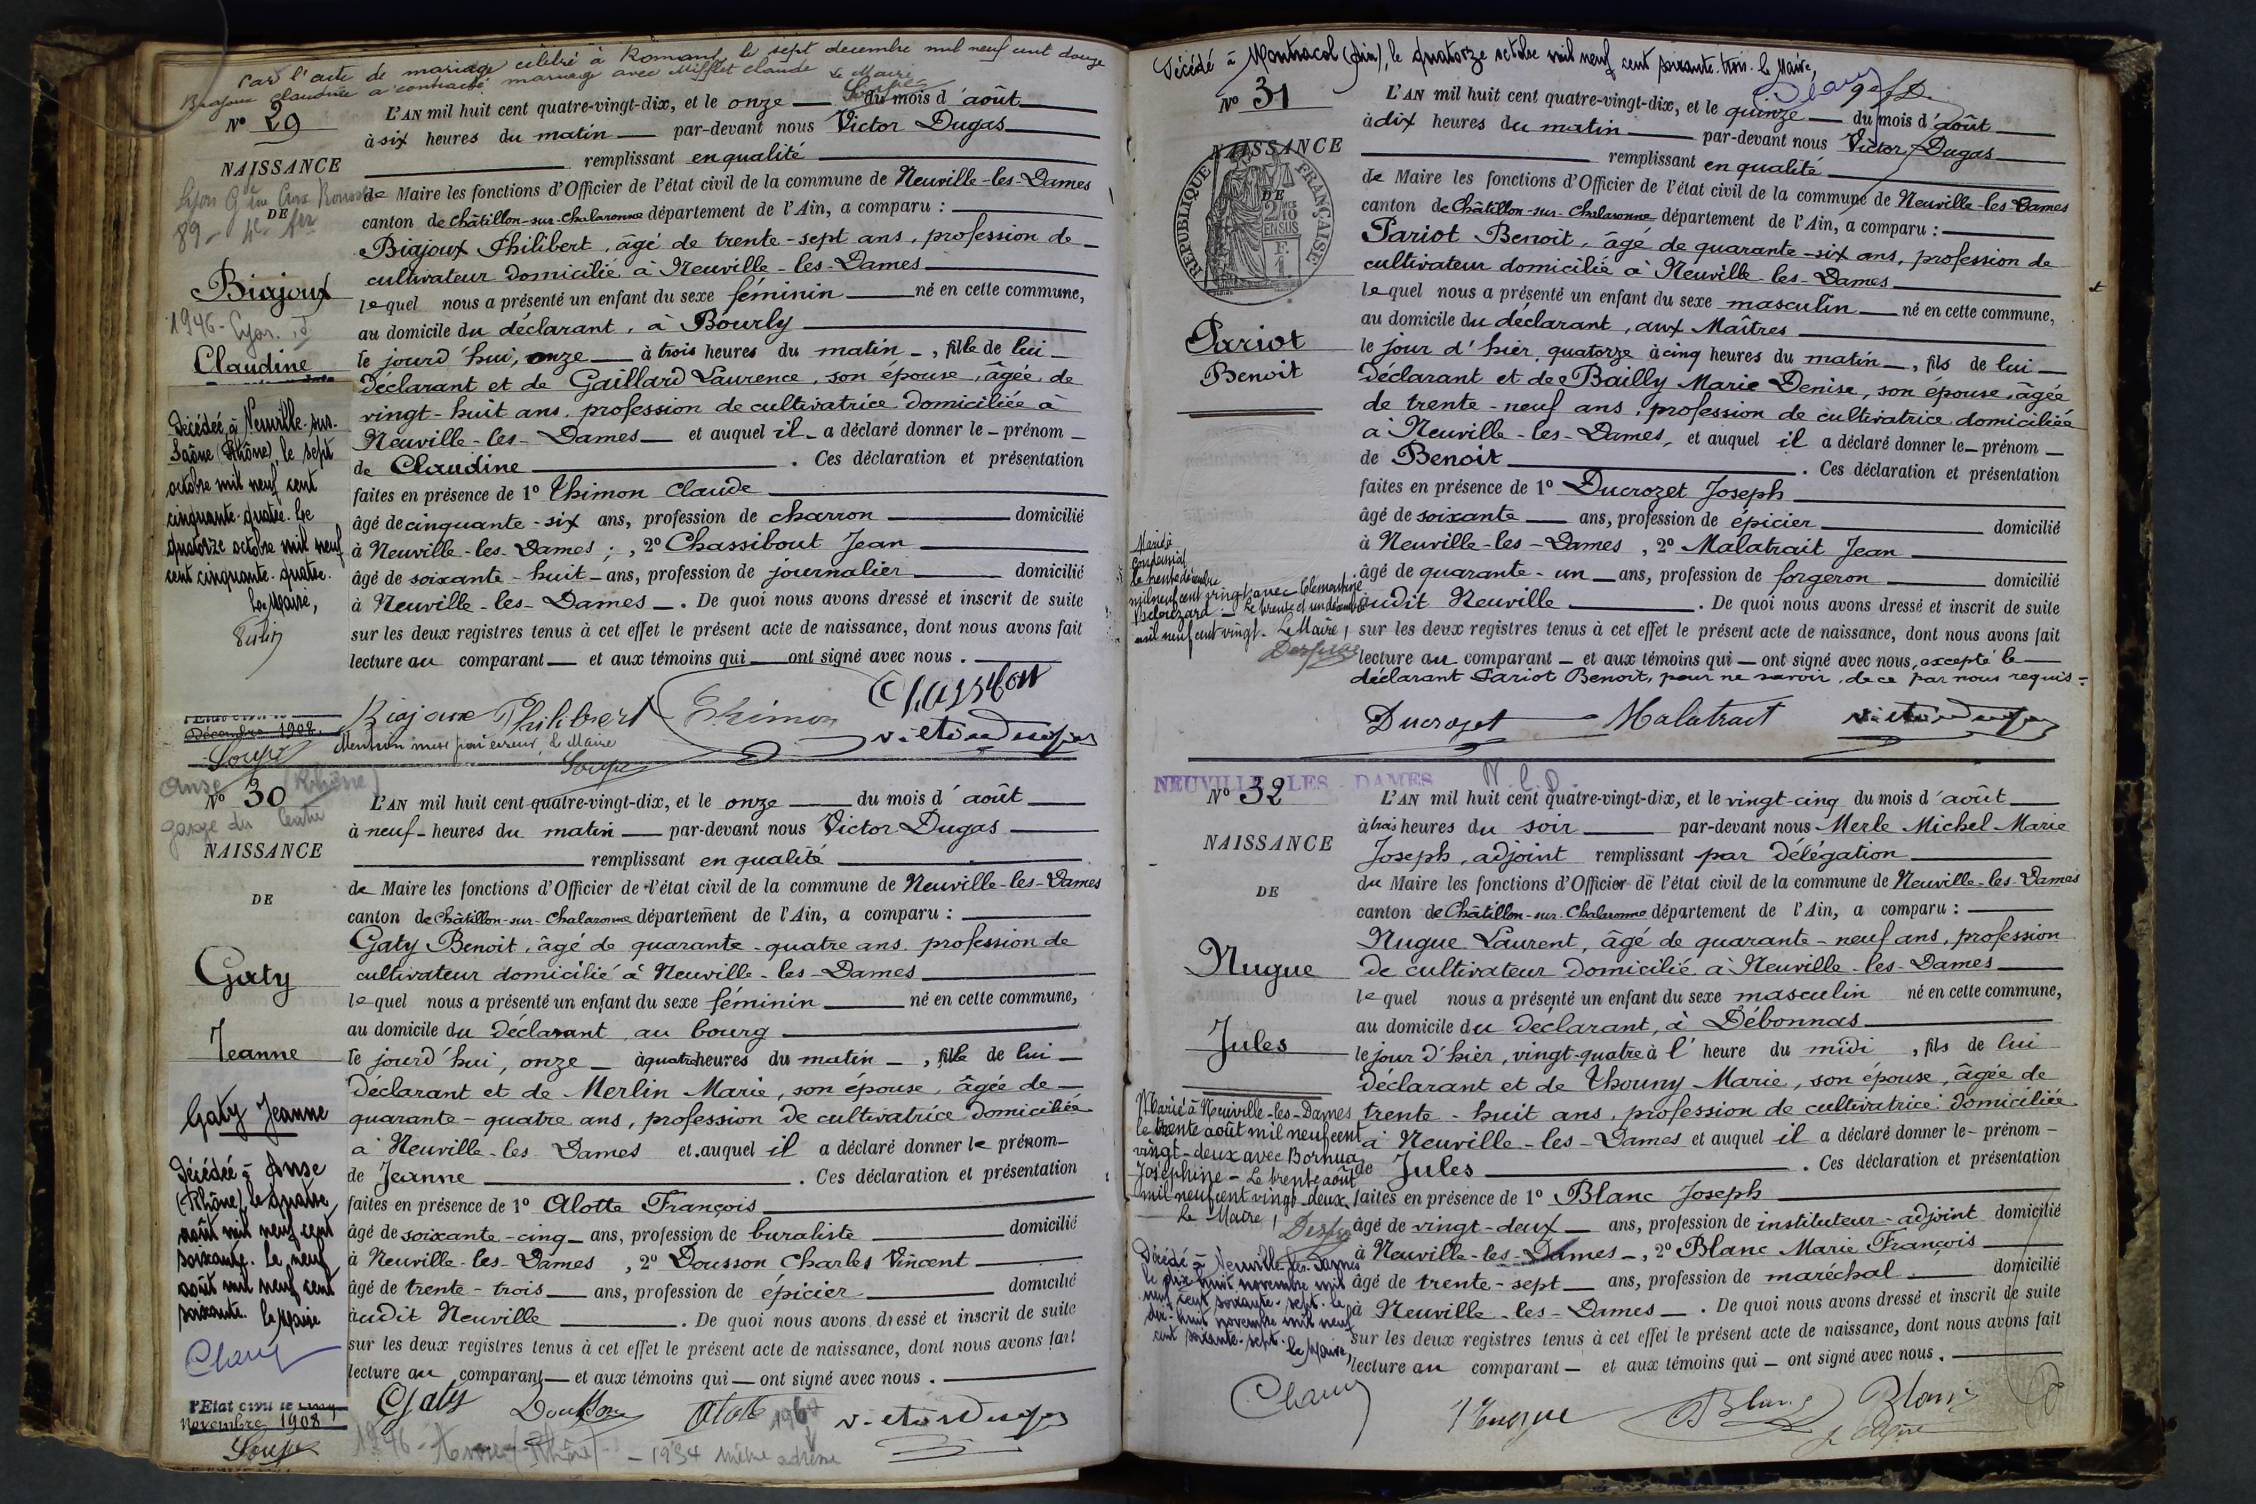 Par l'acte de mariage célébré à Romans le sept décembre mil neuf cent douze
Biajoux Claudine a contracté mariage avec Mifflet Claude Le Maire
Soupe
N° 29
NAISSANCE
DE
Biajoux
1946 - Lyon
Claudine
Décédée à Neuville-sur-
Saône (Rhône), le sept
octobre mil neuf cent
cinquante-quatre. Le
quatorze octobre mil neuf
cent cinquante-quatre.
Le Maire,
L'AN mil huit cent quatre-vingt-dix, et le onze du mois d'août
à six heures du matin par-devant nous Victor Dugas
remplissant en qualité
de Maire les fonctions d'Officier de l'état civil de la commune de Neuville-les-Dames
canton de Châtillon-sur-Chalaronne département de l'Ain, a comparu :
Biajoux Philibert, âgé de trente-sept ans, profession de
cultivateur domicilié à Neuville-les-Dames
lequel nous a présenté un enfant du sexe féminin né en cette commune,
au domicile du déclarant, à Bourly
le jourd'hui, onze à trois heures du matin, fille de lui
déclarant et de Gaillard Laurence, son épouse, âgée de
vingt-huit ans, profession de cultivatrice domiciliée à
Neuville-les-Dames et auquel il a déclaré donner le prénom
de Claudine . Ces déclaration et présentation
faites en présence de 1° Thimon Claude
âgé de cinquante-six ans, profession de charron domicilié
à Neuville-les-Dames ; , 2° Chassibout Jean
âgé de soixante-huit ans, profession de journalier domicilié
à Neuville-les-Dames . De quoi nous avons dressé et inscrit de suite
sur les deux registres tenus à cet effet le présent acte de naissance, dont nous avons fait
lecture au comparant et aux témoins qui ont signé avec nous .
Biajoux Philibert Thimon
Victor Dugas
Décembre 1908
Soupe
Mention mise par erreur, le Maire
Soupe
Anse (Rhône)
garage du Centre
N° 30
NAISSANCE
DE
Gaty
Jeanne
Gaty Jeanne
Décédée à Anse
(Rhône), le quatre
août mil neuf cent
soixante. Le neuf
août mil neuf cent
soixante. Le Maire
l'Etat civil le cinq
Novembre 1908
Soupe
L'AN mil huit cent quatre-vingt-dix, et le onze du mois d'août
à neuf heures du matin par-devant nous Victor Dugas
remplissant en qualité
de Maire les fonctions d'Officier de l'état civil de la commune de Neuville-les-Dames
canton de Châtillon-sur-Chalaronne département de l'Ain, a comparu :
Gaty Benoit, âgé de quarante-quatre ans, profession de
cultivateur domicilié à Neuville-les-Dames
lequel nous a présenté un enfant du sexe féminin né en cette commune,
au domicile du déclarant, au bourg
le jourd'hui, onze à quatre heures du matin, fille de lui
déclarant et de Merlin Marie, son épouse, âgée de
quarante-quatre ans, profession de cultivatrice domiciliée
à Neuville-les-Dames et auquel il a déclaré donner le prénom
de Jeanne . Ces déclaration et présentation
faites en présence de 1° Alotte François
âgé de soixante-cinq ans, profession de buraliste domicilié
à Neuville-les-Dames , 2° Dousson Charles Vincent
âgé de trente-trois ans, profession de épicier domicilié
audit Neuville . De quoi nous avons dressé et inscrit de suite
sur les deux registres tenus à cet effet le présent acte de naissance, dont nous avons fait
lecture au comparant et aux témoins qui ont signé avec nous .
Gaty Dousson Alotte Victor Dugas
1946 (Rhône) - 1954 même adresse
Décédé à Montracol (Ain), le quatorze octobre mil neuf cent soixante-trois. Le Maire,
N° 31
NAISSANCE
DE
RÉPUBLIQUE FRANÇAISE
Pariot
Benoit
Le Maire,
L'AN mil huit cent quatre-vingt-dix, et le quinze du mois d'août
à dix heures du matin par-devant nous Victor Dugas
remplissant en qualité
de Maire les fonctions d'Officier de l'état civil de la commune de Neuville-les-Dames
canton de Châtillon-sur-Chalaronne département de l'Ain, a comparu :
Pariot Benoit, âgé de quarante-six ans, profession de
cultivateur domicilié à Neuville-les-Dames
lequel nous a présenté un enfant du sexe masculin né en cette commune,
au domicile du déclarant, aux Maîtres
le jour d'hier, quatorze à cinq heures du matin, fils de lui
déclarant et de Bailly Marie Denise, son épouse, âgée
de trente-neuf ans, profession de cultivatrice domiciliée
à Neuville-les-Dames, et auquel il a déclaré donner le prénom
de Benoit . Ces déclaration et présentation
faites en présence de 1° Ducrozet Joseph
âgé de soixante ans, profession de épicier domicilié
à Neuville-les-Dames , 2° Malatrait Jean
âgé de quarante-un ans, profession de forgeron domicilié
audit Neuville . De quoi nous avons dressé et inscrit de suite
sur les deux registres tenus à cet effet le présent acte de naissance, dont nous avons fait
lecture au comparant et aux témoins qui ont signé avec nous, excepté le
déclarant Pariot Benoit, pour ne savoir, de ce par nous requis.
Ducrozet Malatrait Victor Dugas
NEUVILLE LES DAMES N.L.D.
N° 32
NAISSANCE
DE
Nugue
Jules
Marié à Neuville-les-Dames
le trente août mil neuf cent
vingt-deux avec Bornua
Joséphine - Le trente août
mil neuf cent vingt-deux
Le Maire,
Décédé à Neuville-les-Dames
le dix-huit novembre mil
neuf cent soixante-sept. Le
dix-huit novembre mil neuf
cent soixante-sept.
Le Maire,
L'AN mil huit cent quatre-vingt-dix, et le vingt-cinq du mois d'août
à trois heures du soir par-devant nous Merle Michel Marie
Joseph, adjoint remplissant par délégation
du Maire les fonctions d'Officier de l'état civil de la commune de Neuville-les-Dames
canton de Châtillon-sur-Chalaronne département de l'Ain, a comparu :
Nugue Laurent, âgé de quarante-neuf ans, profession
de cultivateur domicilié à Neuville-les-Dames
lequel nous a présenté un enfant du sexe masculin né en cette commune,
au domicile du déclarant, à Débonnas
le jour d'hier, vingt-quatre à l'heure du midi , fils de lui
déclarant et de Thouny Marie, son épouse, âgée de
trente-huit ans, profession de cultivatrice domiciliée
à Neuville-les-Dames et auquel il a déclaré donner le prénom
de Jules . Ces déclaration et présentation
faites en présence de 1° Blanc Joseph
âgé de vingt-deux ans, profession de instituteur-adjoint domicilié
à Neuville-les-Dames, 2° Blanc Marie François
âgé de trente-sept ans, profession de maréchal domicilié
à Neuville-les-Dames . De quoi nous avons dressé et inscrit de suite
sur les deux registres tenus à cet effet le présent acte de naissance, dont nous avons fait
lecture au comparant et aux témoins qui ont signé avec nous .
Nugue Blanc Blanc